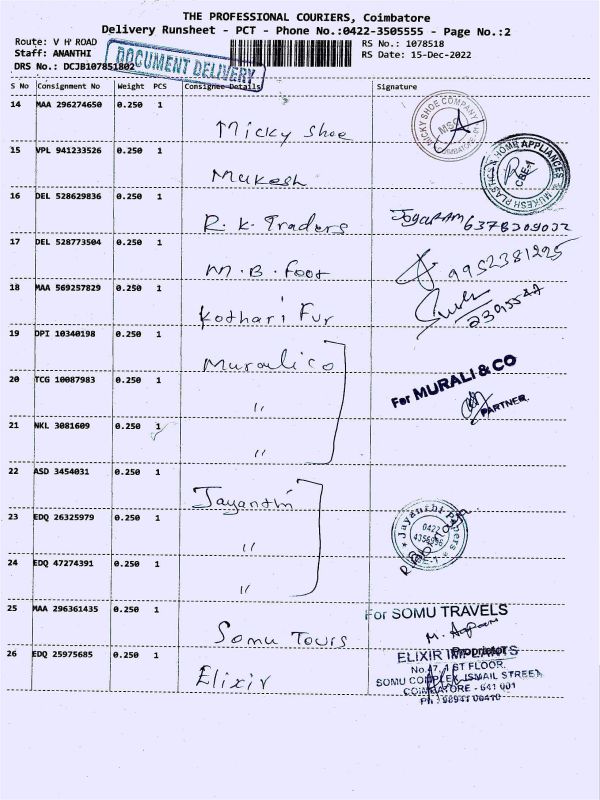 THE PROFESSIONAL COURIERS, Coimbatore
Delivery Runsheet - PCT - Phone No.:0422-3505555 - Page No.:2
Route: V H ROAD
RS No.: 1078518
Staff: ANANTHI
RS Date: 15-Dec-2022
DRS No.: DCJB107851802
DOCUMENT DELIVERY
S No Consignment No Weight PCS Consignee Details Signature
14 MAA 296274650 0.250 1
Micky Shoe
MICKY SHOE COMPANY
15 VPL 941233526 0.250 1
Mukesh
MUKESH PLASTICS & HOME APPLIANCES
CBE-1
16 DEL 528629836 0.250 1
R. K. Traders
17 DEL 528773504 0.250 1
M. B. Foot
9952381295
18 MAA 569257829 0.250 1
Kothari Fur
19 DPI 10340198 0.250 1
Murali co
20 TCG 10087983 0.250 1
"
For MURALI & CO
PARTNER
21 NKL 3081609 0.250 1
"
22 ASD 3454031 0.250 1
Jayanthi
23 EDQ 26325979 0.250 1
"
Jayanthi Papers
0422
24 EDQ 47274391 0.250 1
"
25 MAA 296361435 0.250 1
Somu Tours
For SOMU TRAVELS
Proprietor
26 EDQ 25975685 0.250 1
Elixir
ELIXIR IMPLANTS
No.47, 1 ST FLOOR,
SOMU COMPLEX, ISMAIL STREET,
COIMBATORE - 641 001